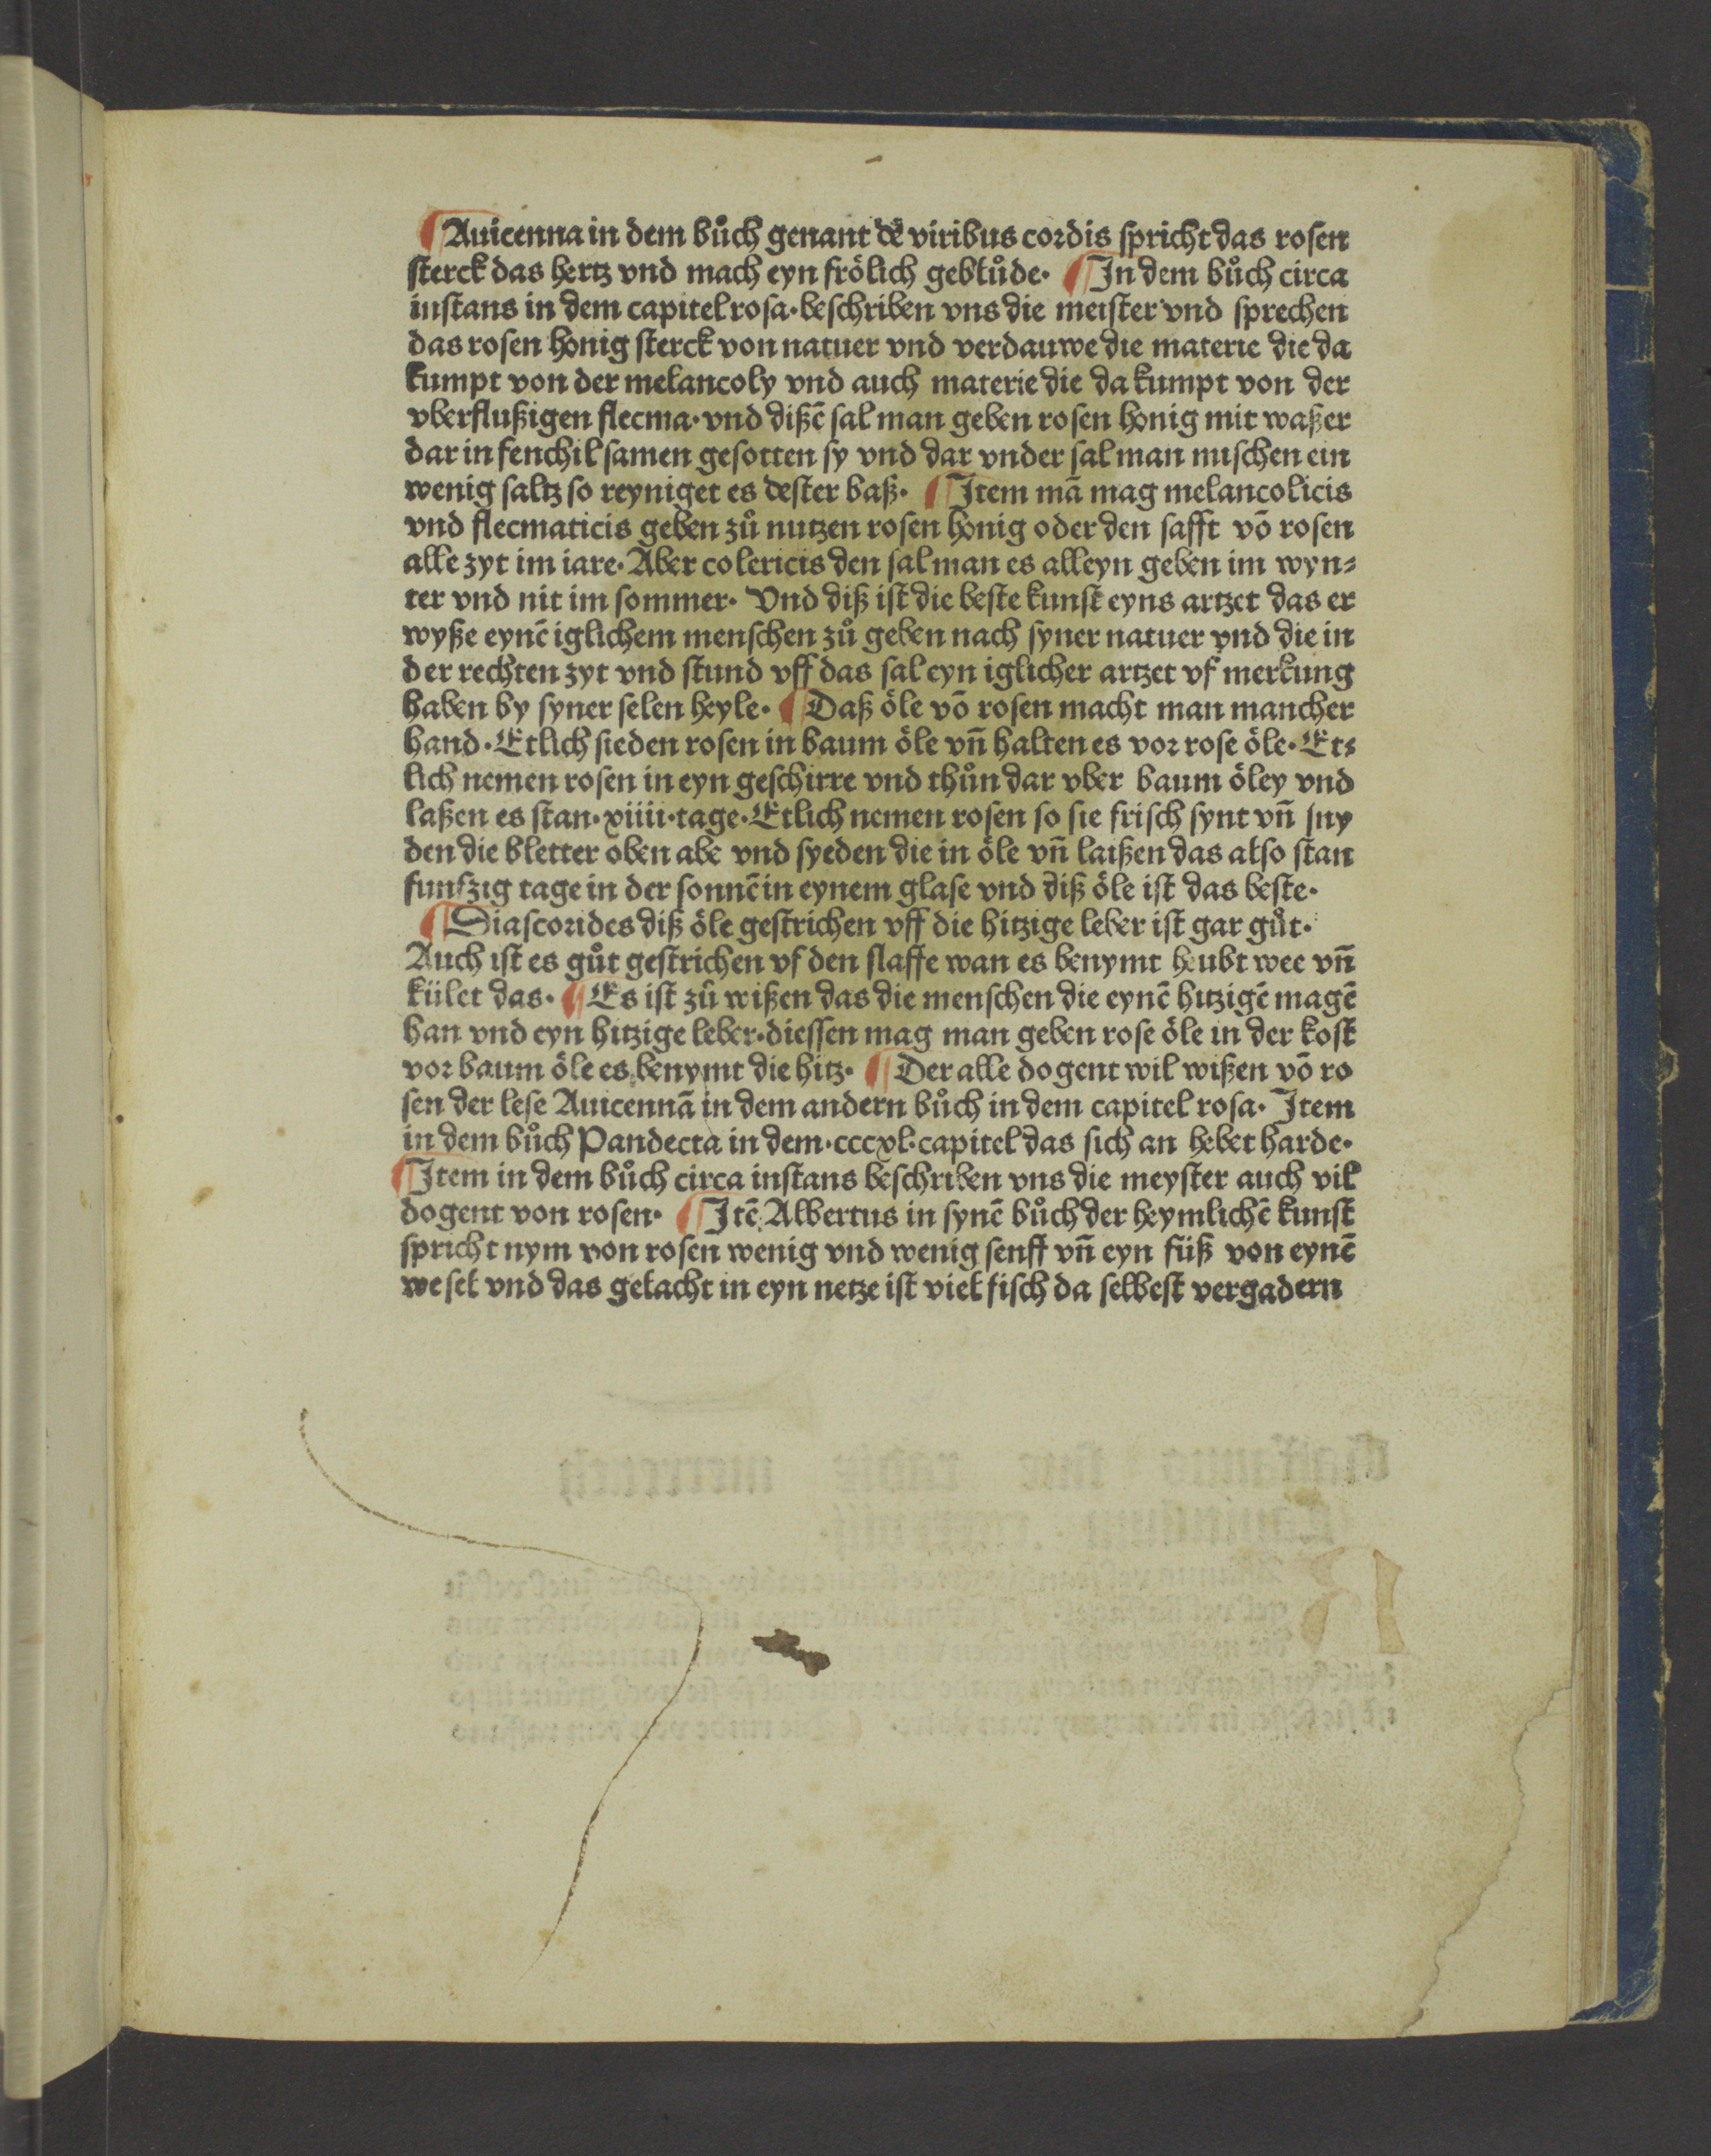 ¶ Auicenna in dem bůch genant de viribus cordis spricht das rosen
sterck das hertz vnd mach eyn frölich geblůde· ¶ In dem bůch circa
instans in dem capitel rosa·beschriben vns die meister vnd sprechen
das rosen honig sterck von natuer vnd verdauwe die materie die da
kumpt von der melancoly vnd auch materie die da kumpt von der
vberflußigen flecma·vnd dißē sal man geben rosen honig mit waßer
dar in fenchil samen gesotten sy vnd dar vnder sal man mischen ein
wenig saltz so reyniget es dester baß· ¶ Item mā mag melancolicis
vnd flecmaticis geben zů nutzen rosen honig oder den safft vō rosen
alle zyt im iare·Aber colericis den sal man es alleyn geben im wyn⸗
ter vnd nit im sommer· Vnd diß ist die beste kunst eyns artzet das er
wyße eynē iglichem menschen zů geben nach syner natuer vnd die in
der rechten zyt vnd stund vff das sal eyn iglicher artzet vf merkung
haben by syner selen heyle· ¶ Daß öle vō rosen macht man mancher
hand·Etlich sieden rosen in baum öle vn̄ halten es vor rose öle·Et⸗
lich nemen rosen in eyn geschirre vnd thůn dar vber baum öley vnd
laßen es stan·xiiii·tage·Etlich nemen rosen so sie frisch synt vn̄ sny
den die bletter oben abe vnd syeden die in öle vn̄ laißen das also stan
funfzig tage in der sonnē in eynem glase vnd diß öle ist das beste·
¶ Diascorides diß öle gestrichen vff die hitzige leber ist gar gůt·
Auch ist es gůt gestrichen vf den slaffe wan es benymt heubt wee vn̄
kület das· ¶ Es ist zů wißen das die menschen die eynē hitzigē magē
han vnd eyn hitzige leber·diessen mag man geben rose öle in der kost
vor baum öle es benymt die hitz· ¶ Der alle dogent wil wißen vō ro
sen der lese Auicennā in dem andern bůch in dem capitel rosa· Item
in dem bůch Pandecta in dem·cccxl·capitel das sich an hebet harde·
¶ Item in dem bůch circa instans beschriben vns die meyster auch vil
dogent von rosen· ¶ Itē Albertus in synē bůch der heymlichē kunst
spricht nym von rosen wenig vnd wenig senff vn̄ eyn füß von eynē
wesel vnd das gelacht in eyn netze ist viel fisch da selbest vergadern